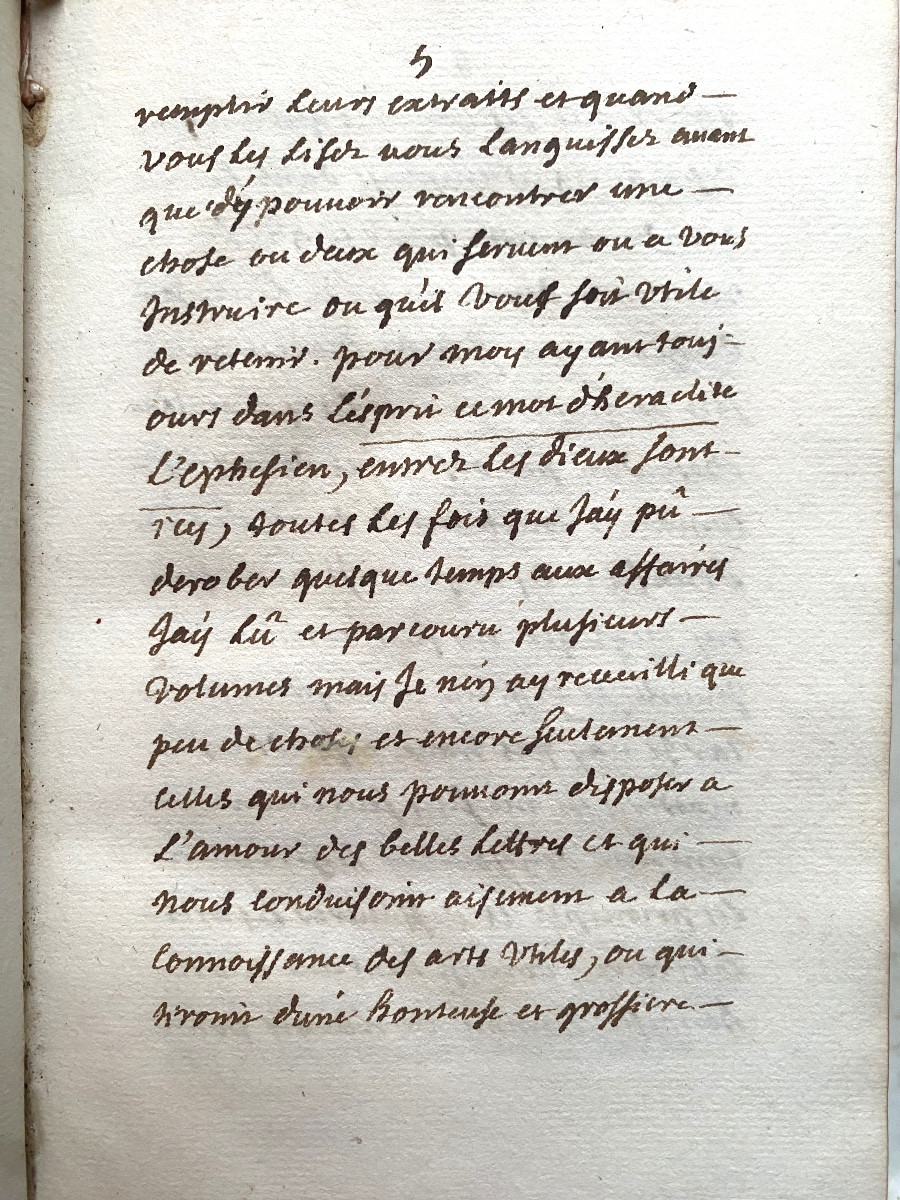 5
remplir leurs extraits et quand —
vous les lisez vous languissez auant
que d'ÿ pouuoir rencontrer une —
chose ou deux qui seruent ou a vous
Instruire ou qu'il vous soit vtile
de retenir. pour moy ayant touj-
ours dans l'ésprit ce mot d'heraclite
L'ephesien, entrez les dieux sont —
icy, toutes les fois que J'aÿ pû —
derober quelque temps aux affaires
J'aÿ Lû et parcouru plusieurs —
volumes mais Je n'en ay recueilli que
peu de choses et encore seulement —
celles qui nous pouuoint disposer a
L'amour des belles Lettres et qui —
nous conduisoint aisement a La —
connoissance des arts vtiles, ou qui —
tiroint d'uné honteuse et grossiere —